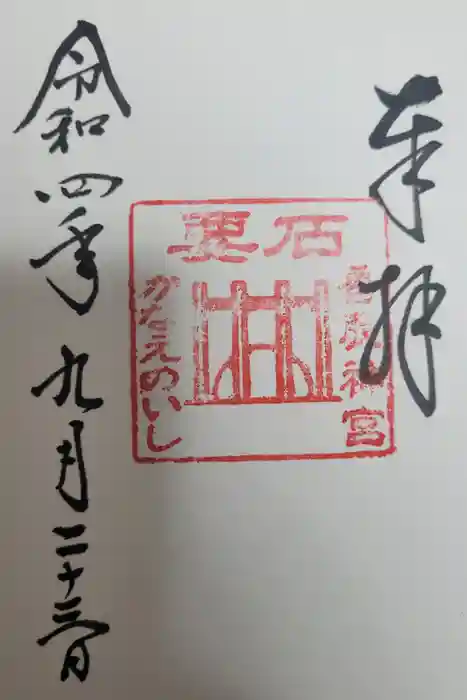 奉拝
要石
神宮
かなえのいし
令和四年九月二十三日